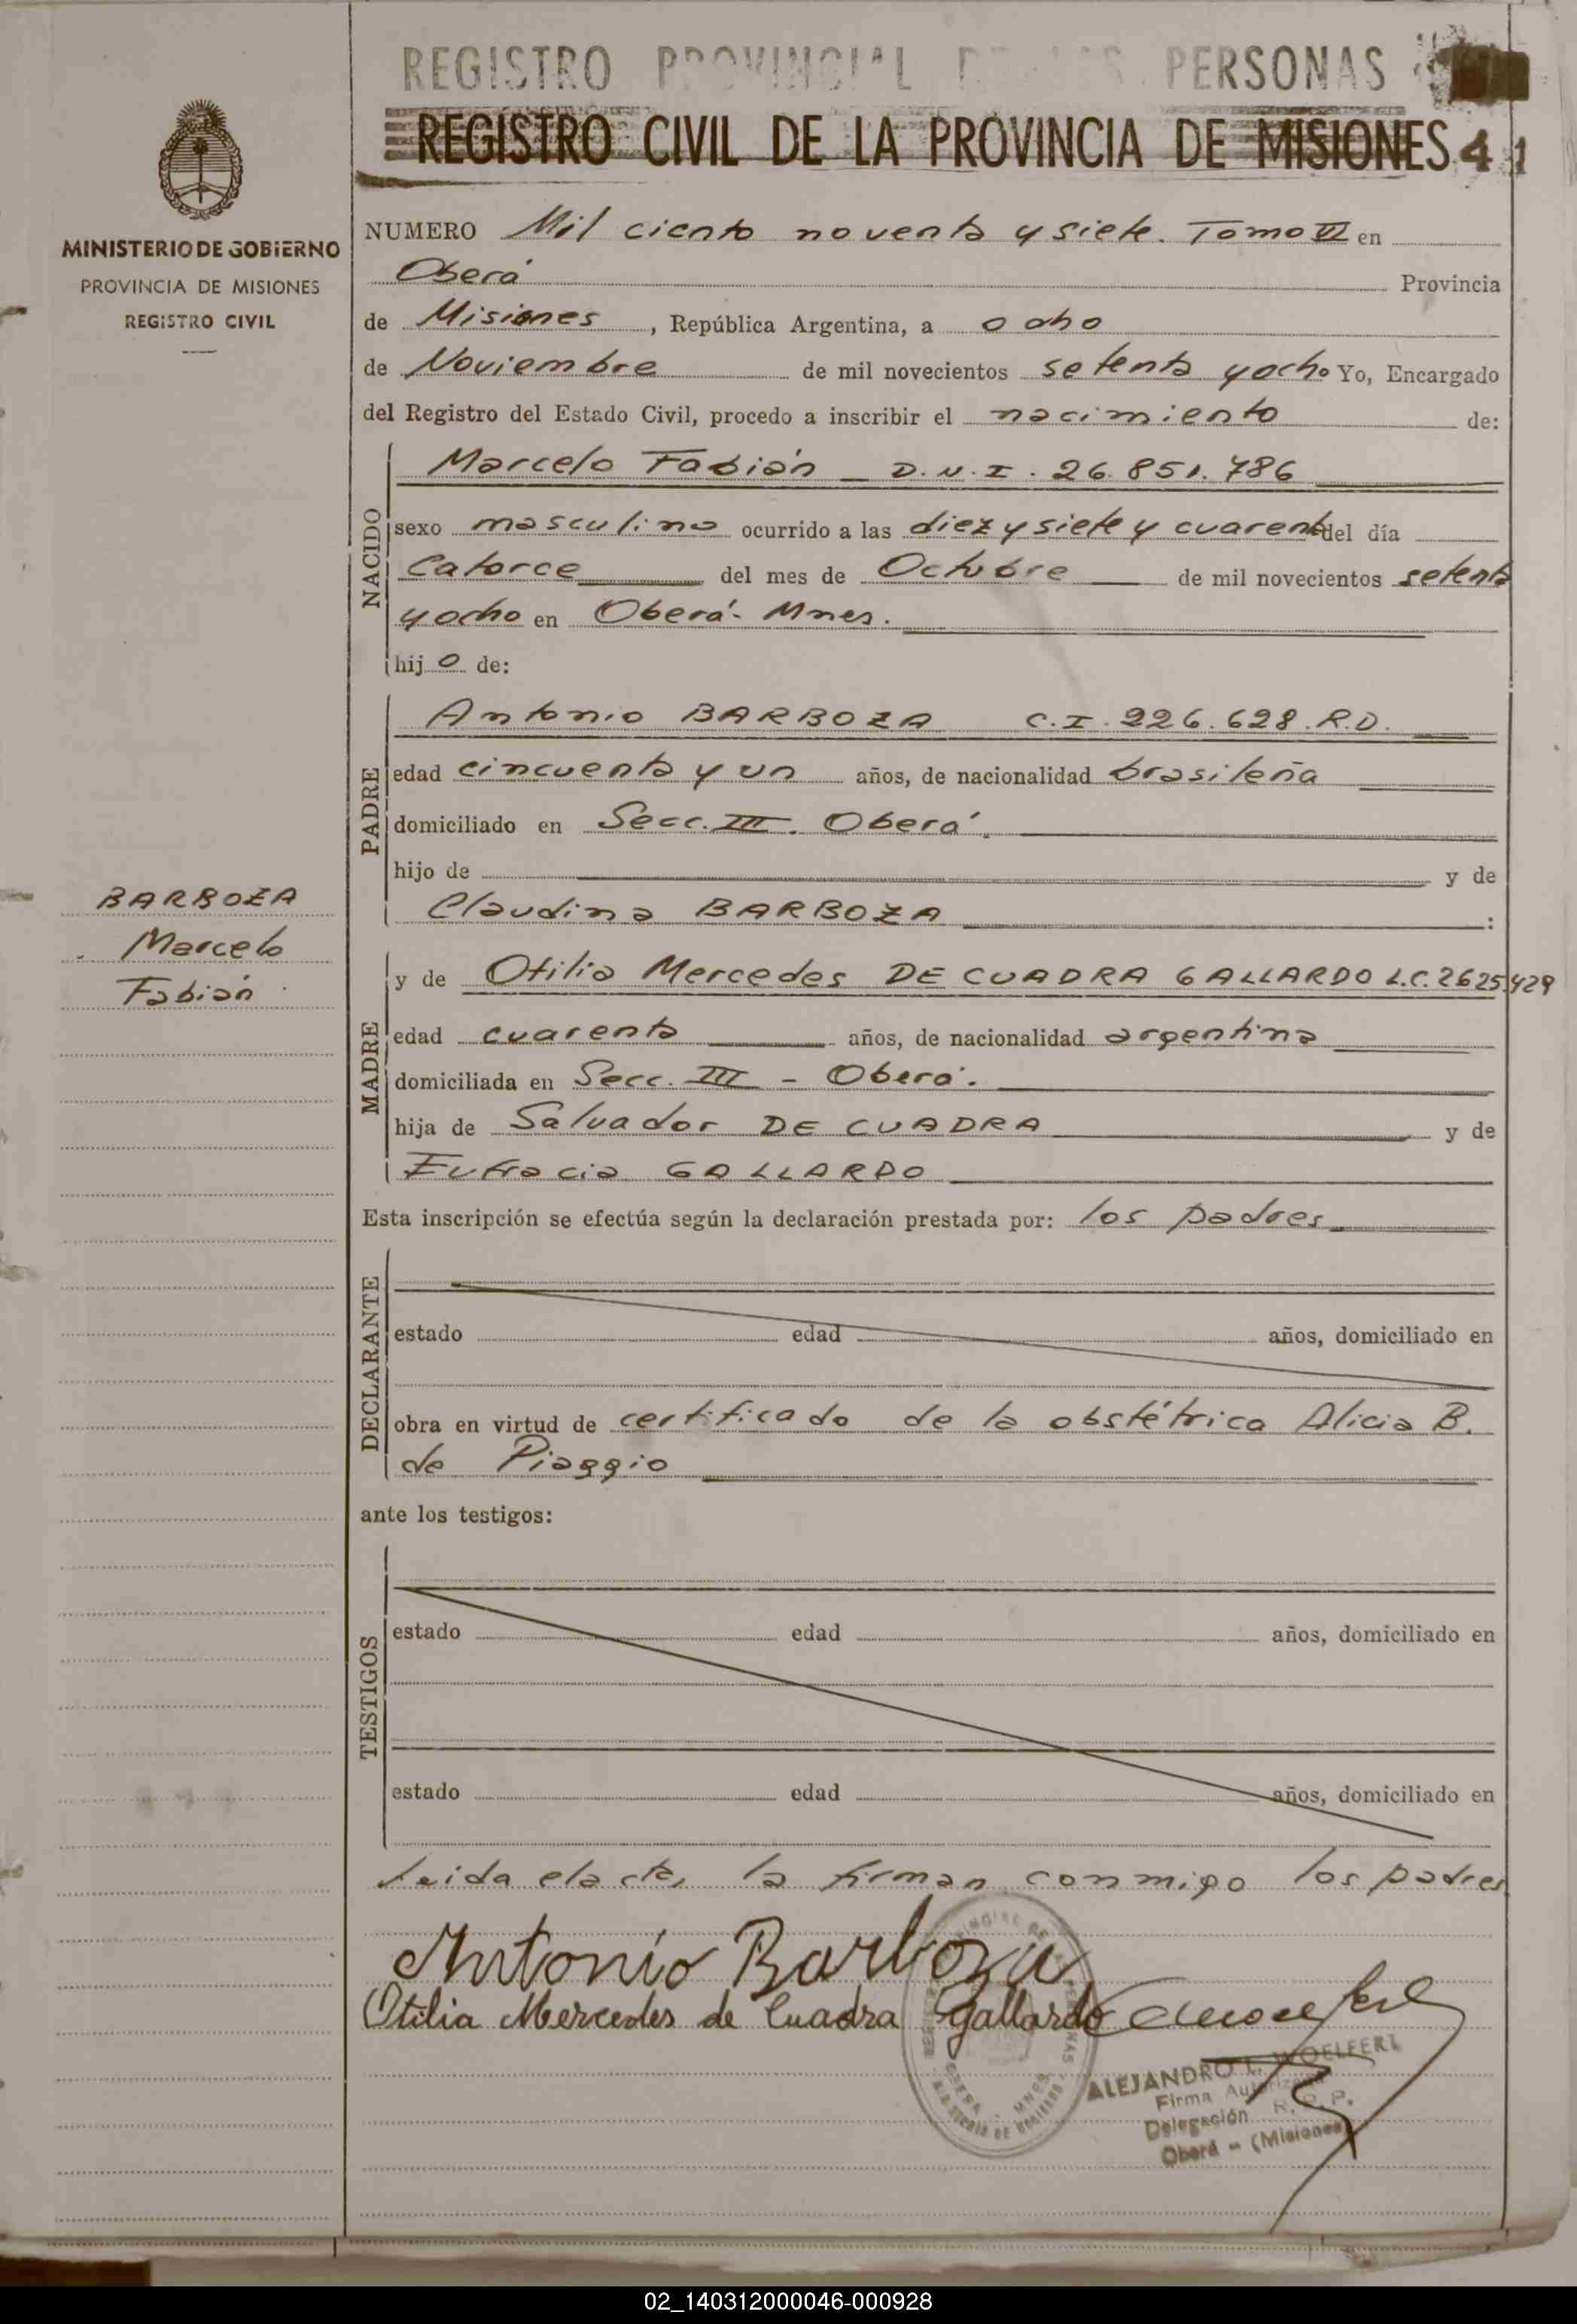 REGISTRO PROVINCIAL DE LAS PERSONAS
REGISTRO CIVIL DE LA PROVINCIA DE MISIONES 41
MINISTERIO DE GOBIERNO
PROVINCIA DE MISIONES
REGISTRO CIVIL
NUMERO Mil ciento noventa y siete. Tomo VI en
Oberá Provincia
de Misiones, República Argentina, a ocho
de Noviembre de mil novecientos setenta y ocho Yo, Encargado
del Registro del Estado Civil, procedo a inscribir el nacimiento de:
NACIDO
Marcelo Fabián D.N.I. 26.851.786
sexo masculino ocurrido a las diez y siete y cuarenta del día
Catorce del mes de Octubre de mil novecientos setenta
y ocho en Oberá - Mnes.
hijo de:
PADRE
Antonio BARBOZA C.I. 226.628.R.D.
edad cincuenta y un años, de nacionalidad brasileña
domiciliado en Secc. III. Oberá.
hijo de y de
Claudina BARBOZA :
BARBOZA
Marcelo
Fabián
MADRE
y de Otilia Mercedes DE CUADRA GALLARDO L.C. 2625429
edad cuarenta años, de nacionalidad argentina
domiciliada en Secc. III - Oberá.
hija de Salvador DE CUADRA y de
Eufracia GALLARDO
Esta inscripción se efectúa según la declaración prestada por: los padres
DECLARANTE
estado edad años, domiciliado en
obra en virtud de certificado de la obstétrica Alicia B.
de Piaggio
ante los testigos:
TESTIGOS
estado edad años, domiciliado en
estado edad años, domiciliado en
Leida el acta, la firman conmigo los padres
Antonio Barboza
Otilia Mercedes de Cuadra Gallardo
ALEJANDRO L. WOELFERT
Firma Autorizada
Delegación R. P. P.
Oberá - (Misiones)
02_140312000046-000928